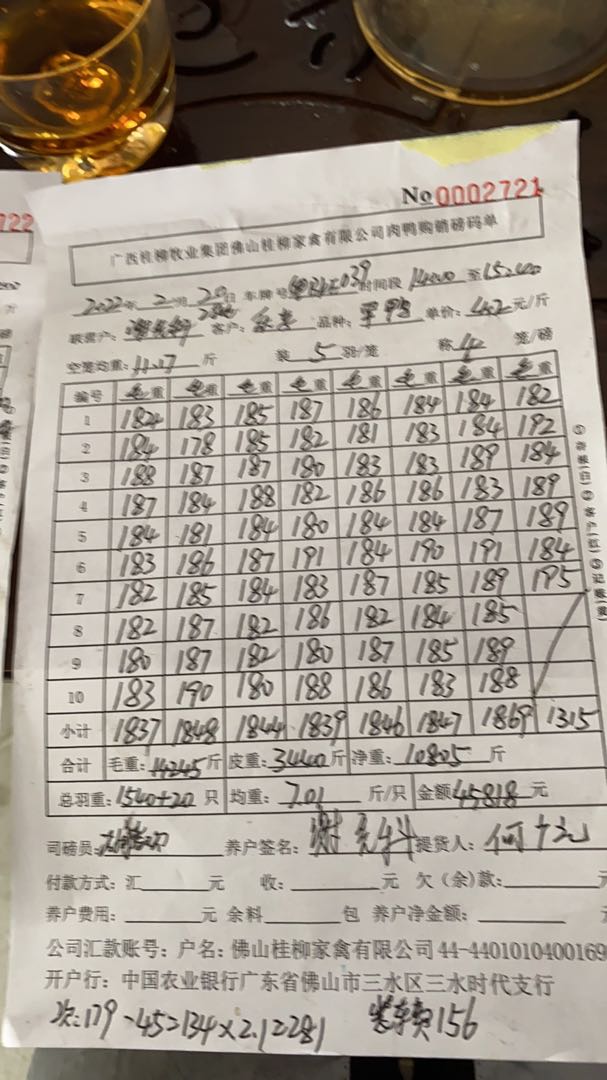 №0002721
广西桂柳牧业集团佛山桂柳家禽有限公司肉鸭购销磅码单
2022年2月20日 车牌号 039 时间段 至
联营户: 客户: 品种: 单价:4.2元/斤
空笼均重:11.17斤 装5羽/笼 称4笼/磅
编号 毛重 毛重 毛重 毛重 毛重 毛重 毛重 毛重
1 182 183 185 187 186 184 184 182
2 184 178 185 182 181 183 184 192
3 188 187 187 180 183 183 189 184
4 187 184 188 182 186 186 183 189
5 184 181 184 180 184 184 187 189
6 183 186 187 191 184 190 191 184
7 182 185 184 183 187 185 189 195
8 182 187 182 186 182 184 185
9 180 187 182 180 187 185 189
10 183 190 180 188 186 183 188
小计 1837 1848 1844 1839 1846 1847 1869 1315
合计 毛重:14245斤 皮重:3440斤 净重:10805斤
总羽重:1540+20只 均重:7.01斤/只 金额45818元
司磅员: 养户签名:谢 科 提货人:何
付款方式:汇 元 收: 元 欠(余)款: 元
养户费用: 元 余料 包 养户净金额: 元
公司汇款账号:户名:佛山桂柳家禽有限公司 44-4401010400169
开户行:中国农业银行广东省佛山市三水区三水时代支行
次:179-45=134×2.1=281 装车费156
①存根(白)②客户(红)③记账(黄)
722